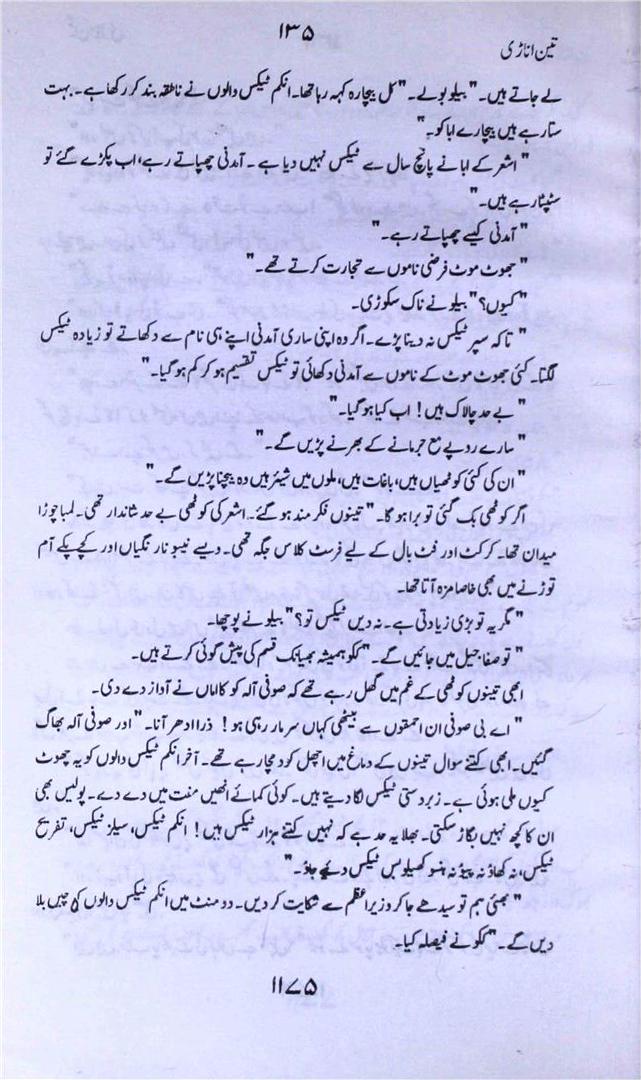 ۱۳۵
تین اناڑی
لے جاتے ہیں۔" بیلو بولے۔ "کل بیچارہ کہہ رہا تھا۔ انکم ٹیکس والوں نے ناطقہ بند کر رکھا ہے۔ بہت
ستا رہے ہیں بیچارے ابا کو۔"
"اشعر کے ابا نے پانچ سال سے ٹیکس نہیں دیا ہے۔ آمدنی چھپاتے رہے، اب پکڑے گئے تو
سٹپٹا رہے ہیں۔"
"آمدنی کیسے چھپاتے رہے۔"
"جھوٹ موٹ فرضی ناموں سے تجارت کرتے تھے۔"
"کیوں؟" بیلو نے ناک سکوڑی۔
"تاکہ سپر ٹیکس نہ دینا پڑے۔ اگر وہ اپنی ساری آمدنی اپنے ہی نام سے دکھاتے تو زیادہ ٹیکس
لگتا۔ کئی جھوٹ موٹ کے ناموں سے آمدنی دکھائی تو ٹیکس تقسیم ہو کر کم ہو گیا۔"
"بے حد چالاک ہیں! اب کیا ہو گیا۔"
"سارے روپے مع جرمانے کے بھرنے پڑیں گے۔"
"ان کی کئی کوٹھیاں ہیں، باغات ہیں، ملوں میں شیئر ہیں وہ بیچنا پڑیں گے۔"
اگر کوٹھی بک گئی تو برا ہو گا۔" تینوں فکر مند ہو گئے۔ اشعر کی کوٹھی بے حد شاندار تھی۔ لمبا چوڑا
میدان تھا۔ کرکٹ اور فٹ بال کے لیے فرسٹ کلاس جگہ تھی۔ ویسے نیبو نارنگیاں اور کچے پکے آم
توڑنے میں بھی خاصا مزہ آتا تھا۔
"مگر یہ تو بڑی زیادتی ہے۔ نہ دیں ٹیکس تو؟" بیلو نے پوچھا۔
"تو صفا جیل میں جائیں گے۔" ککو ہمیشہ بھیانک قسم کی پیش گوئی کرتے ہیں۔
ابھی تینوں کوٹھی کے غم میں گھل رہے تھے کہ صوفی آلہ کو کاماں نے آواز دے دی۔
"اے بی صوفی ان احمقوں سے بیٹھی کہاں سر مار رہی ہو! ذرا ادھر آنا۔" اور صوفی آلہ بھاگ
گئیں۔ ابھی کتنے سوال تینوں کے دماغ میں اچھل کود مچا رہے تھے۔ آخر انکم ٹیکس والوں کو یہ چھوٹ
کیوں ملی ہوئی ہے۔ زبردستی ٹیکس لگا دیتے ہیں۔ کوئی کمائے انھیں منت میں دے دے۔ پولیس بھی
ان کا کچھ نہیں بگاڑ سکتی۔ بھلا یہ حد ہے کہ نہیں کتنے ہزار ٹیکس ہیں! انکم ٹیکس، سیلز ٹیکس، تفریح
ٹیکس، نہ کھاؤ نہ پیو نہ ہنسو کھیلو بس ٹیکس دئے جاؤ۔"
"بھئی ہم تو سیدھے جا کر وزیر اعظم سے شکایت کر دیں۔ دو منٹ میں انکم ٹیکس والوں کی چیں بلا
دیں گے۔" ککو نے فیصلہ کیا۔
۱۱۷۵